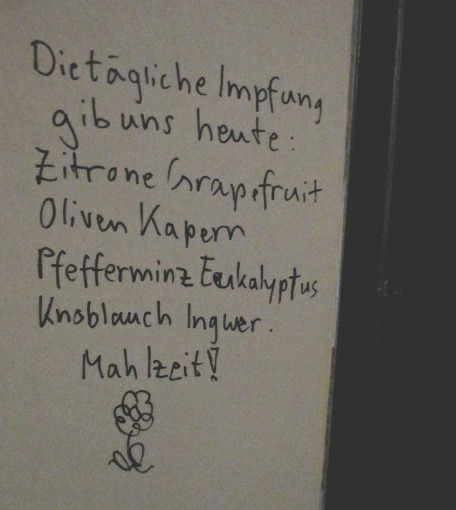 Die tägliche Impfung
gib uns heute:
Zitrone Grapefruit
Oliven Kapern
Pfefferminz Eukalyptus
Knoblauch Ingwer.
Mahlzeit!